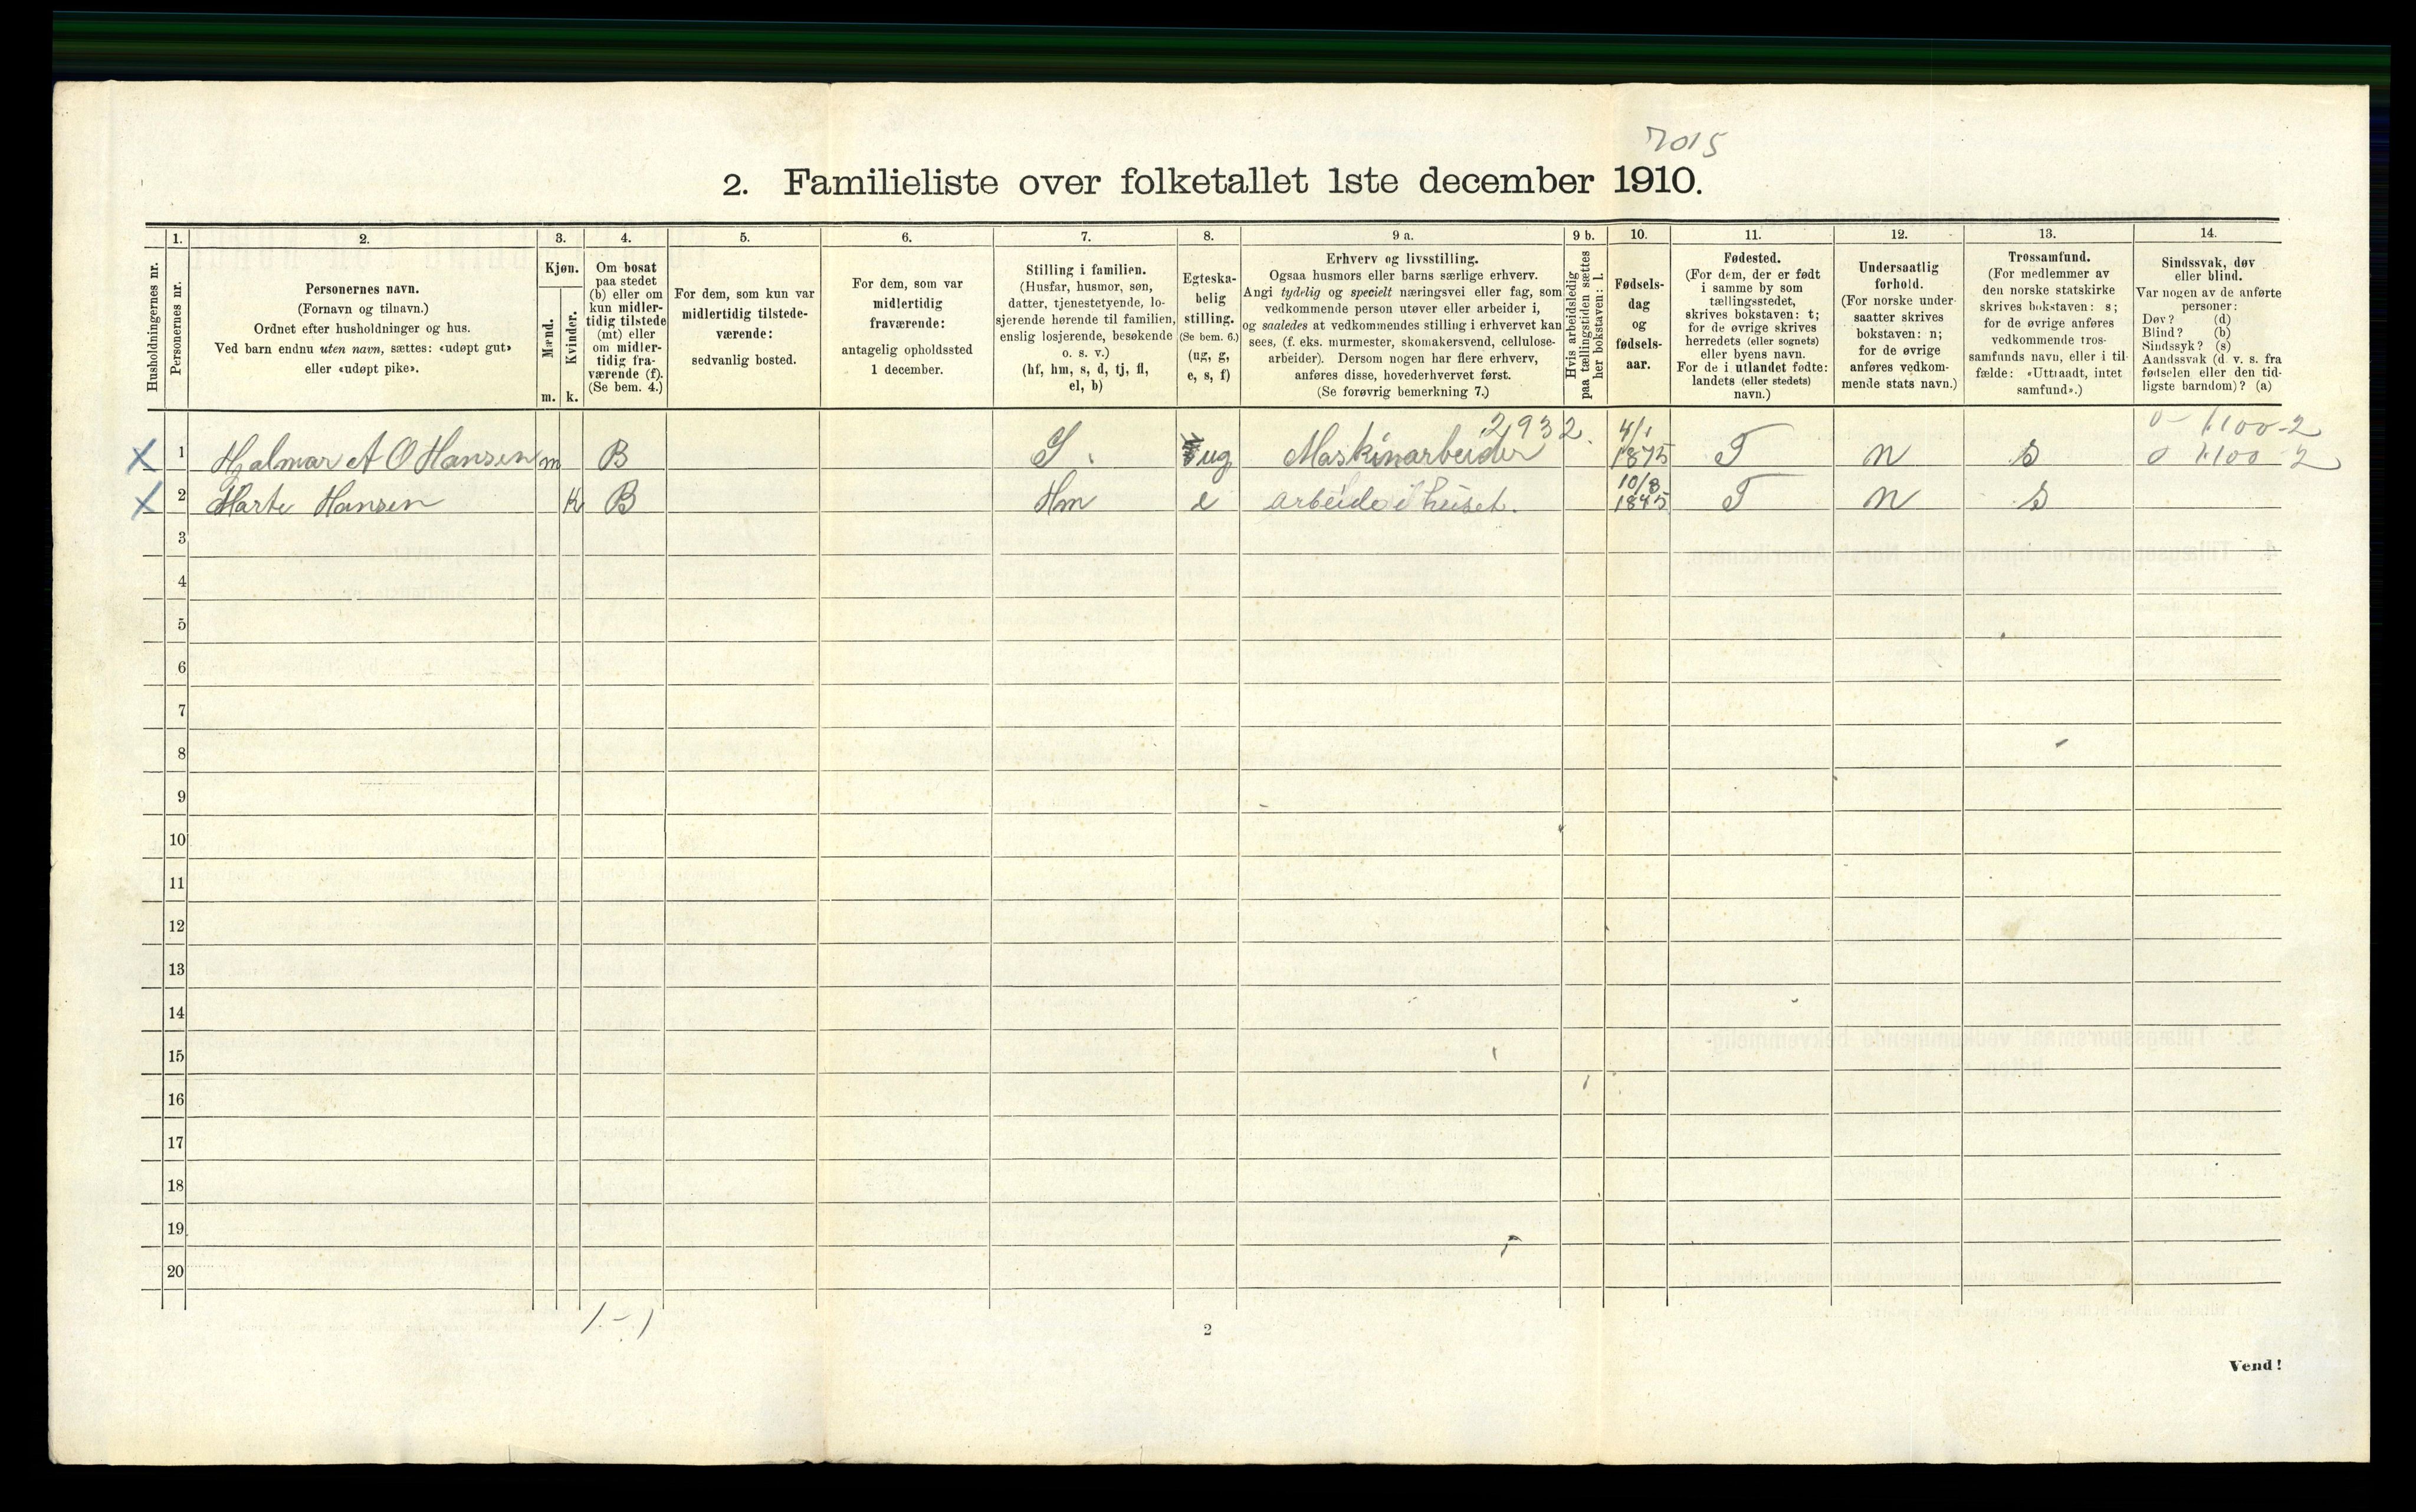 7015
2. Familieliste over folketallet 1ste december 1910.
Husholdningernes nr.
1.
Personernes nr.
2.
Personernes navn.
(Fornavn og tilnavn.)
Ordnet efter husholdninger og hus.
Ved barn endnu uten navn, sættes: «udøpt gut»
eller «udøpt pike».
3.
Kjøn.
Mænd.
Kvinder.
m. k.
4.
Om bosat
paa stedet
(b) eller om
kun midler-
tidig tilstede
(mt) eller
om midler-
tidig fra-
værende (f).
(Se bem. 4.)
5.
For dem, som kun var
midlertidig tilstede-
værende:
sedvanlig bosted.
6.
For dem, som var
midlertidig
fraværende:
antagelig opholdssted
1 december.
7.
Stilling i familien.
(Husfar, husmor, søn,
datter, tjenestetyende, lo-
sjerende hørende til familien,
enslig losjerende, besøkende
o. s. v.)
(hf, hm, s, d, tj, fl,
el, b)
8.
Egteska-
belig
stilling.
(Se bem. 6.)
(ug, g,
e, s, f)
9 a.
Erhverv og livsstilling.
Ogsaa husmors eller barns særlige erhverv.
Angi tydelig og specielt næringsvei eller fag, som
vedkommende person utøver eller arbeider i,
og saaledes at vedkommendes stilling i erhvervet kan
sees, (f. eks. murmester, skomakersvend, cellulose-
arbeider). Dersom nogen har flere erhverv,
anføres disse, hovederhvervet først.
(Se forøvrig bemerkning 7.)
9 b.
Hvis arbeidsledig
paa tællingstiden sættes
her bokstaven: l.
10.
Fødsels-
dag
og
fødsels-
aar.
11.
Fødested.
(For dem, der er født
i samme by som
tællingsstedet,
skrives bokstaven: t;
for de øvrige skrives
herredets (eller sognets)
eller byens navn.
For de i utlandet fødte:
landets (eller stedets)
navn.)
12.
Undersaatlig
forhold.
(For norske under-
saatter skrives
bokstaven: n;
for de øvrige
anføres vedkom-
mende stats navn.)
13.
Trossamfund.
(For medlemmer av
den norske statskirke
skrives bokstaven: s;
for de øvrige anføres
vedkommende tros-
samfunds navn, eller i til-
fælde: «Uttraadt, intet
samfund».)
14.
Sindssvak, døv
eller blind.
Var nogen av de anførte
personer:
Døv? (d)
Blind? (b)
Sindssyk? (s)
Aandssvak (d. v. s. fra
fødselen eller den tid-
ligste barndom)? (a)
2932. 4/1 0 - 1100-2
X 1 Hjalmar A O Hansen m B S. ug Maskinarbeider 1875 T n s 0 1100-2
10/8
X 2 Marte Hansen K B Hm e arbeide i huset. 1845 T n s
3
4
5
6
7
8
9
10
11
12
13
14
15
16
17
18
19
20
1 - 1
2
Vend!